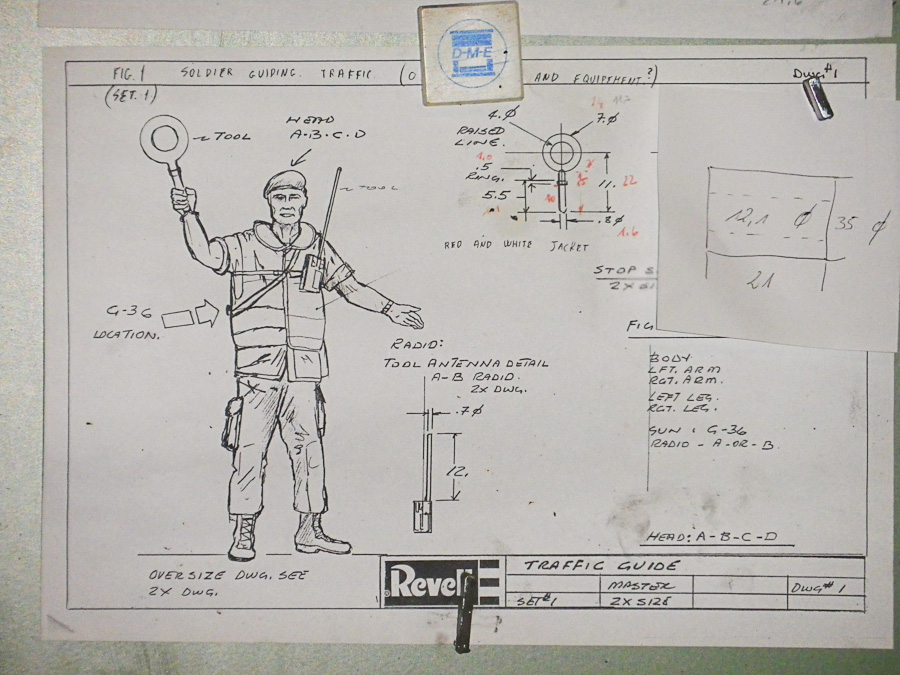 FIG. 1 SOLDIER GUIDING TRAFFIC. (O
AND EQUIPEMENT?)
DWG #1
(SET. 1)
D-M-E
TOOL
HEAD
A-B-C-D
TOOL
G-36
LOCATION.
4.Ø
7.Ø
RAISED
LINE.
1.0
.5
RING.
5.5
11.
22
.8Ø
1.6
RED AND WHITE JACKET
STOP S
2X SI
12,1 Ø
35 Ø
21
FIG
BODY
LFT. ARM
RGT. ARM.
LEFT LEG.
RGT. LEG.
GUN : G-36
RADIO - A-OR-B.
HEAD: A-B-C-D
RADIO:
TOOL ANTENNA DETAIL
A-B RADIO.
2X DWG.
.7Ø
12.
OVERSIZE DWG. SEE
2X DWG.
Revell
TRAFFIC GUIDE
MASTER
DWG # 1
SET #1
2X SIZE